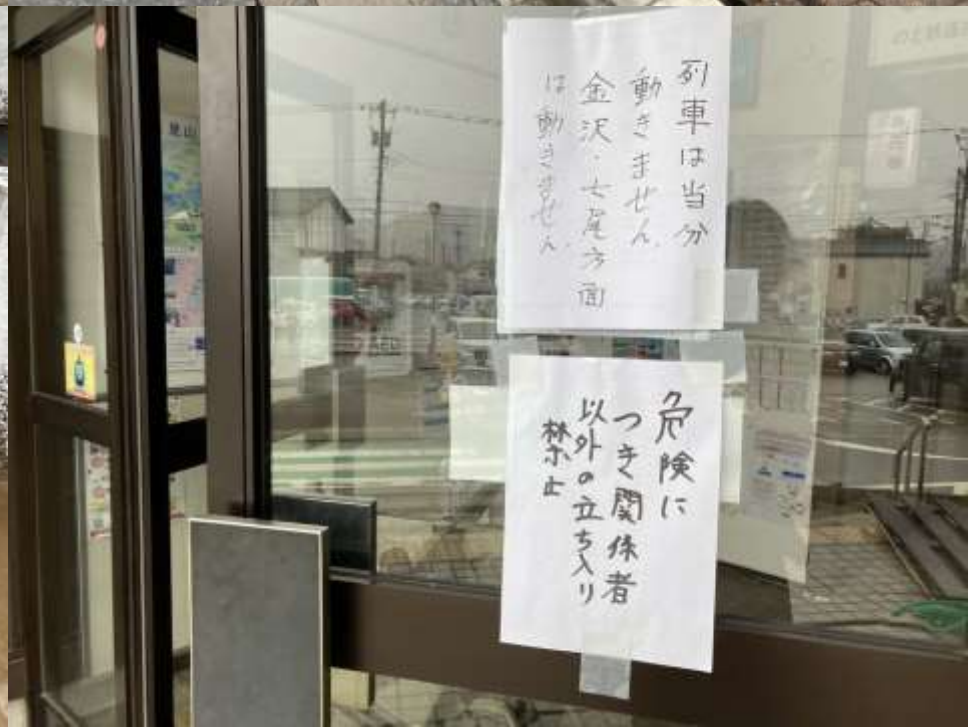 列車は当分
動きません
金沢・七尾方面
は動きません
危険に
つき関係者
以外の立ち入り
禁止
AED